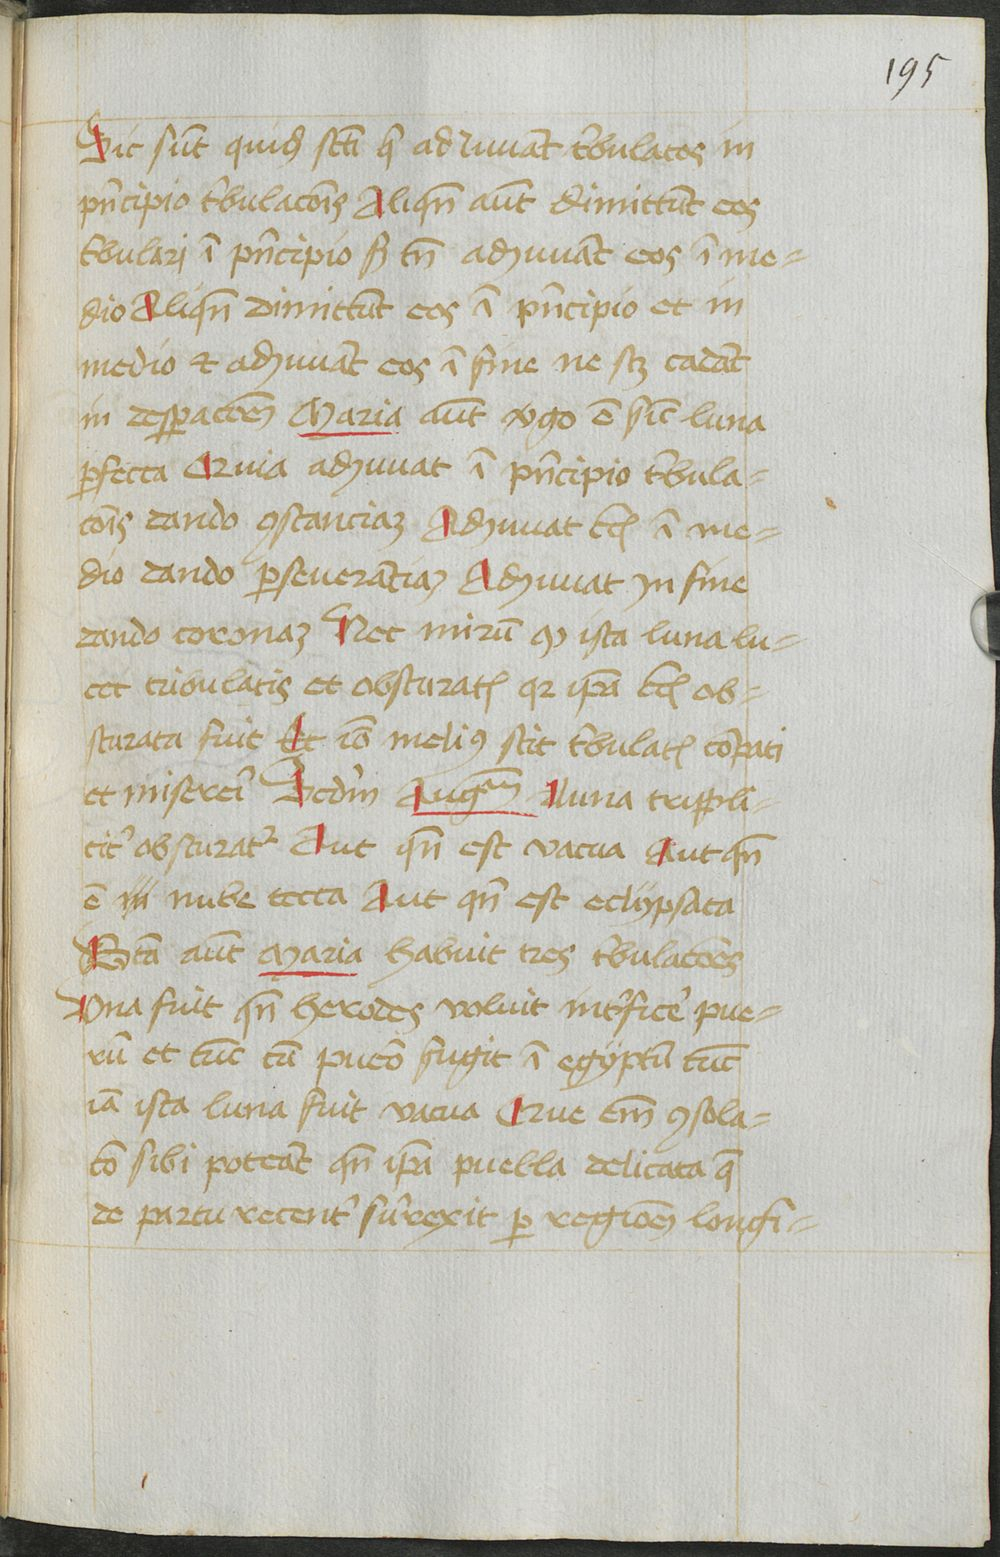 195
Sic sūt quid̄ scti q̄ adiuuāt t'bulatos in
pn̄cipio t'bulacōis Aliqn̄ aūt dimittūt eos
t'bulari ī pn̄cipio sꝫ tn̄ adiuuāt eos ī me=
dio Aliqn̄ dimittūt eos ī pn̄cipio et in
medio ⁊ adiuuāt eos ī fine ne sꝫ cadāt
in despacōeꝫ Maria aūt v̾go ē sic̄ luna
ꝑfecta Quia adiuuat ī pn̄cipio t'bula=
cōis dando ꝯstanciaꝫ Adiuuat ecī ī me=
dio dando ꝑseuerātiaꝫ Adiuuat yn fine
dando coronaꝫ Nec mirū ꝙ ista luna lu=
cet tribulatis et obscuratꝭ qr ip̄a ecī ob=
scurata fuit Et iō meliꝯ scit t'bulatꝭ cōpati
et misereri' Scdm̄ Augᵐ luna trippli=
cit' obscurat' Aut qn̄ est vacua Aut qn̄
ē nube tecta Aut qn̄ est eclypsata
Bt̄a aūt Maria habuit tres t'bulacōes
Vna fuit qn̄ herodes voluit int'fice' pue=
rū et tūc cū pueō fugit ī egyptū tūc
iā ista luna fuit vacua Que em̄ ꝯsola=
cō sibi poterāt qn̄ ip̄a puella delicata q̄
de partu recent' su'rexit ꝑ regiōeꝫ longi=